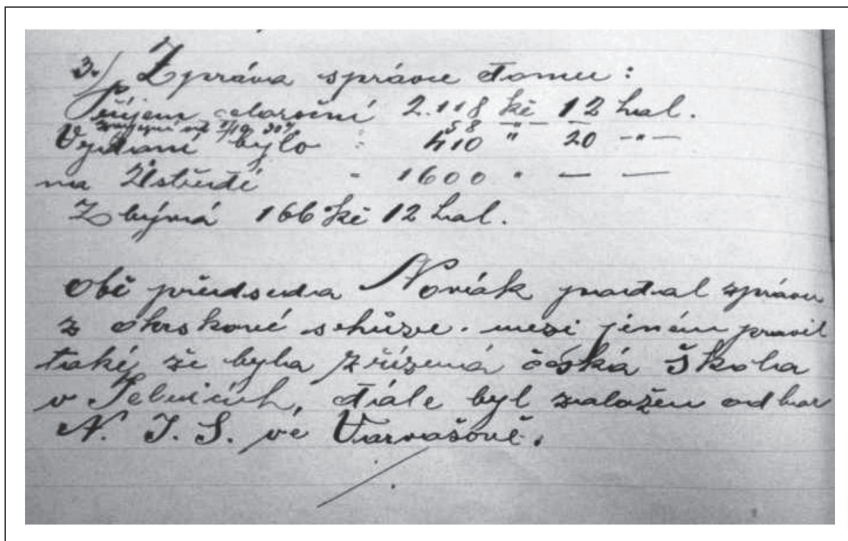 3./ Zpráva správce domu:
Příjem celoroční 2.118 kč 12 hal.
Vydání bylo : 410 " 20 -"-
na Ústředí - 1600 " — —
Zbývá 166 kč 12 hal.
obě předseda Novák podal zprávu
z okrskové schůze. mezi jiném pravil
také že byla zřízená česká škola
v Telnicích, dále byl založen odbor
N. J. S. ve Varvašově.